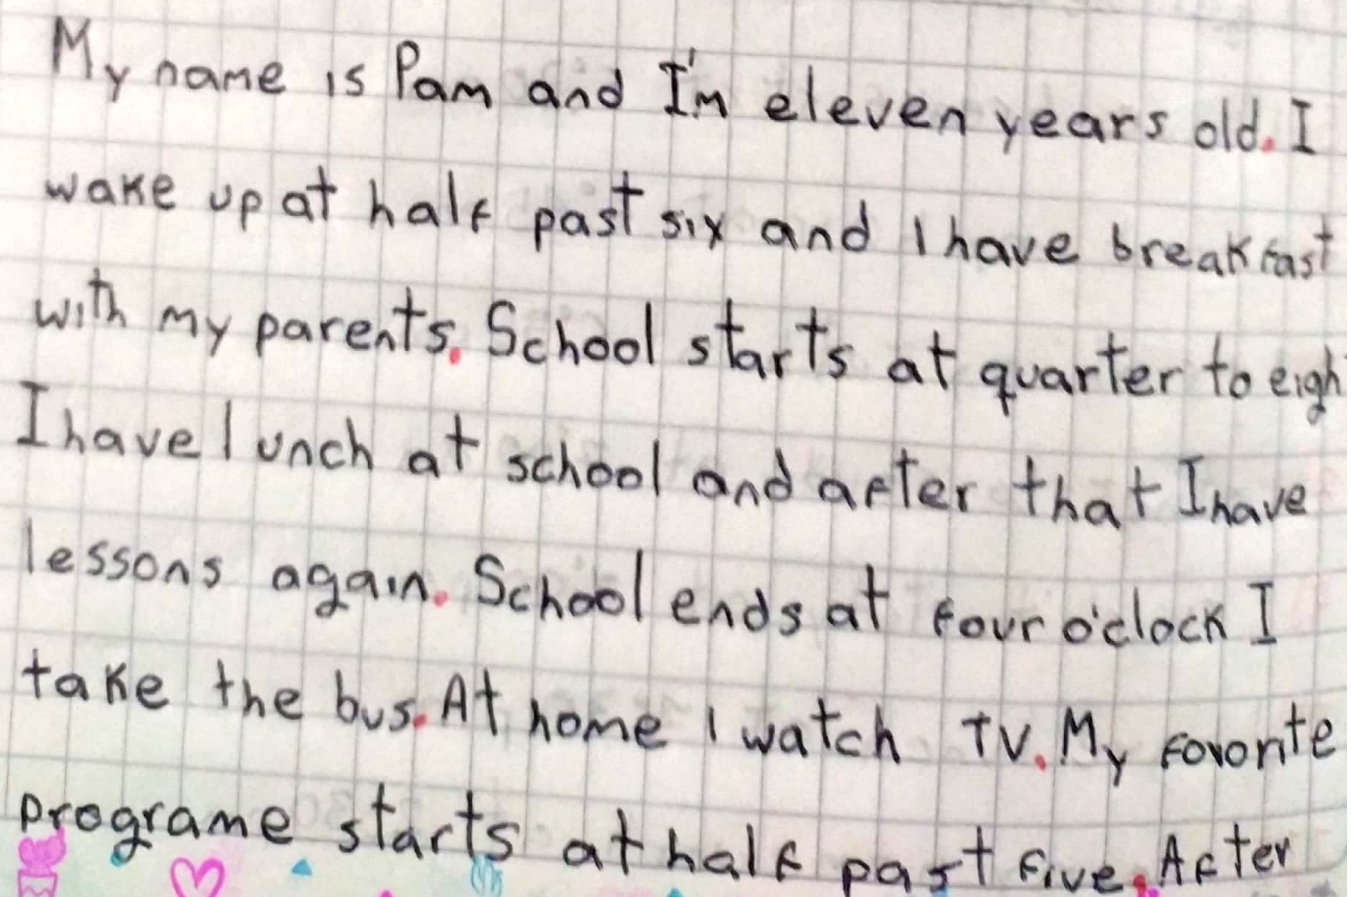 My name is Pam and I'm eleven years old. I
wake up at half past six and I have breakfast
with my parents. School starts at quarter to eigh
I have lunch at school and after that I have
lessons again. School ends at four o'clock I
take the bus. At home I watch TV. My favorite
programe starts at half past five. After